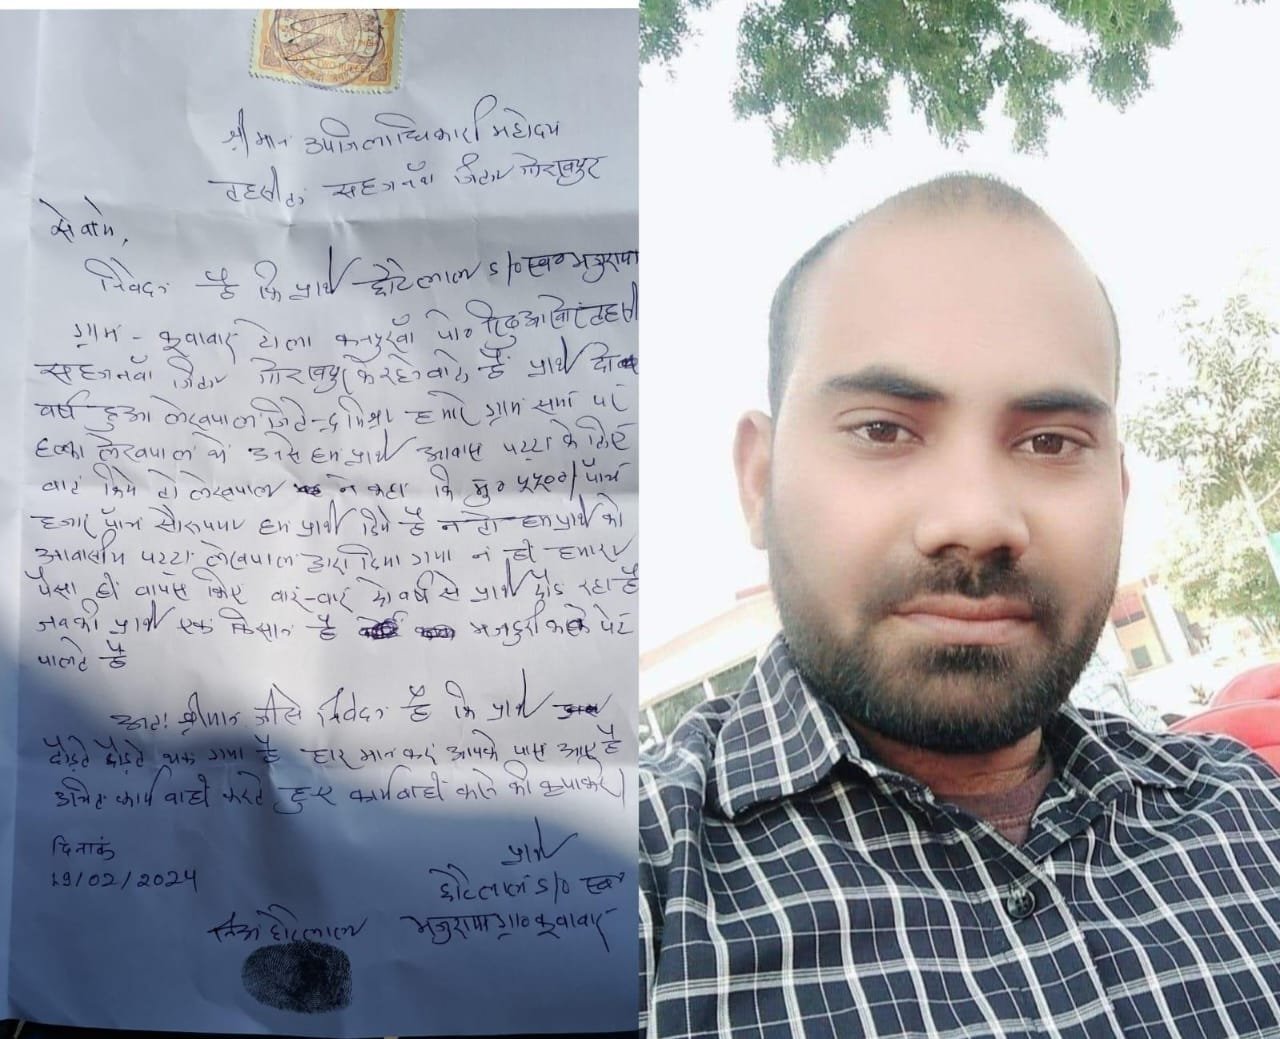 श्रीमान उपजिलाधिकारी महोदय
तहसील सहजनवाँ जिला गोरखपुर
सेवामें,
निवेदन है कि प्रार्थी छोटेलाल S/O स्व०
ग्राम - कूवावार टोला पो०
सहजनवाँ जिला गोरखपुर के रहने वाले है प्रार्थी दो
वर्ष हुआ लेखपाल जितेन्द्र मिश्रा हमारे ग्राम सभा पर
हल्का लेखपाल थे उनसे हम प्रार्थी आवास पट्टा के लिए
बात किये तो लेखपाल ने कहा कि मु० ५५००/ पाँच
हजार पाँच सौ रुपया हम प्रार्थी दिये है न तो हम प्रार्थी को
आवासीय पट्टा लेखपाल द्वारा दिया गया न ही हमारा
पैसा ही वापस किए बार-बार दो वर्ष से प्रार्थी दौड रहा है
जबकी प्रार्थी एक किसान है मजदुरी करके पेट
पालते है
अतः श्रीमान जी से निवेदन है कि प्रार्थी
दौड़ते दौड़ते थक गया है हार मान कर आपके पास आए है
उचित कार्यवाही करते हुए कार्यवाही करने की कृपा करें।
दिनाकं
19/02/2024
प्रार्थी
छोटेलाल S/O स्व०
ग्रा० कूवावार
छोटेलाल